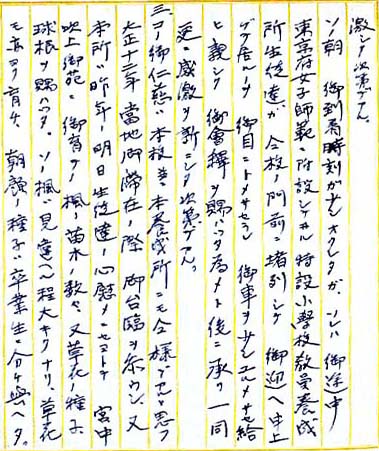 激シタ次第デアル。
ソノ朝 御到着時刻ガ少シオクレタガ、ソレハ御途中
東京府女子師範ニ附設シテヰル特設小學校教員養成
所生徒達ガ 全校ノ門前ニ堵列シテ 御迎ヘ申上
ゲテ居ルノヲ 御目ニトメサセラレ 御車ヲ少シユルメサセ給
ヒ 親シク 御會釋ヲ賜ハツタ為メト後ニ承リ 一同
更ニ感激ヲ新ニシタ次第デアル。
三、コノ御仁慈ハ本校並ニ本養成所ニモ全様デアルト思フ
大正十二年 當地御滞在ノ際 御台臨ヲ忝ウシ、又
本所ハ昨年ノ明日生徒達ノ心慰メニセヨトテ 宮中
吹上御苑ニ御育テノ楓ノ苗木ノ数々、又草花ノ種子
球根ヲ賜ハツタ。ソノ楓ハ見違ヘル程大キクナリ、草花
モ 育チ、朝顔ノ種子ハ卒業生ニ分ケ與ヘタ。